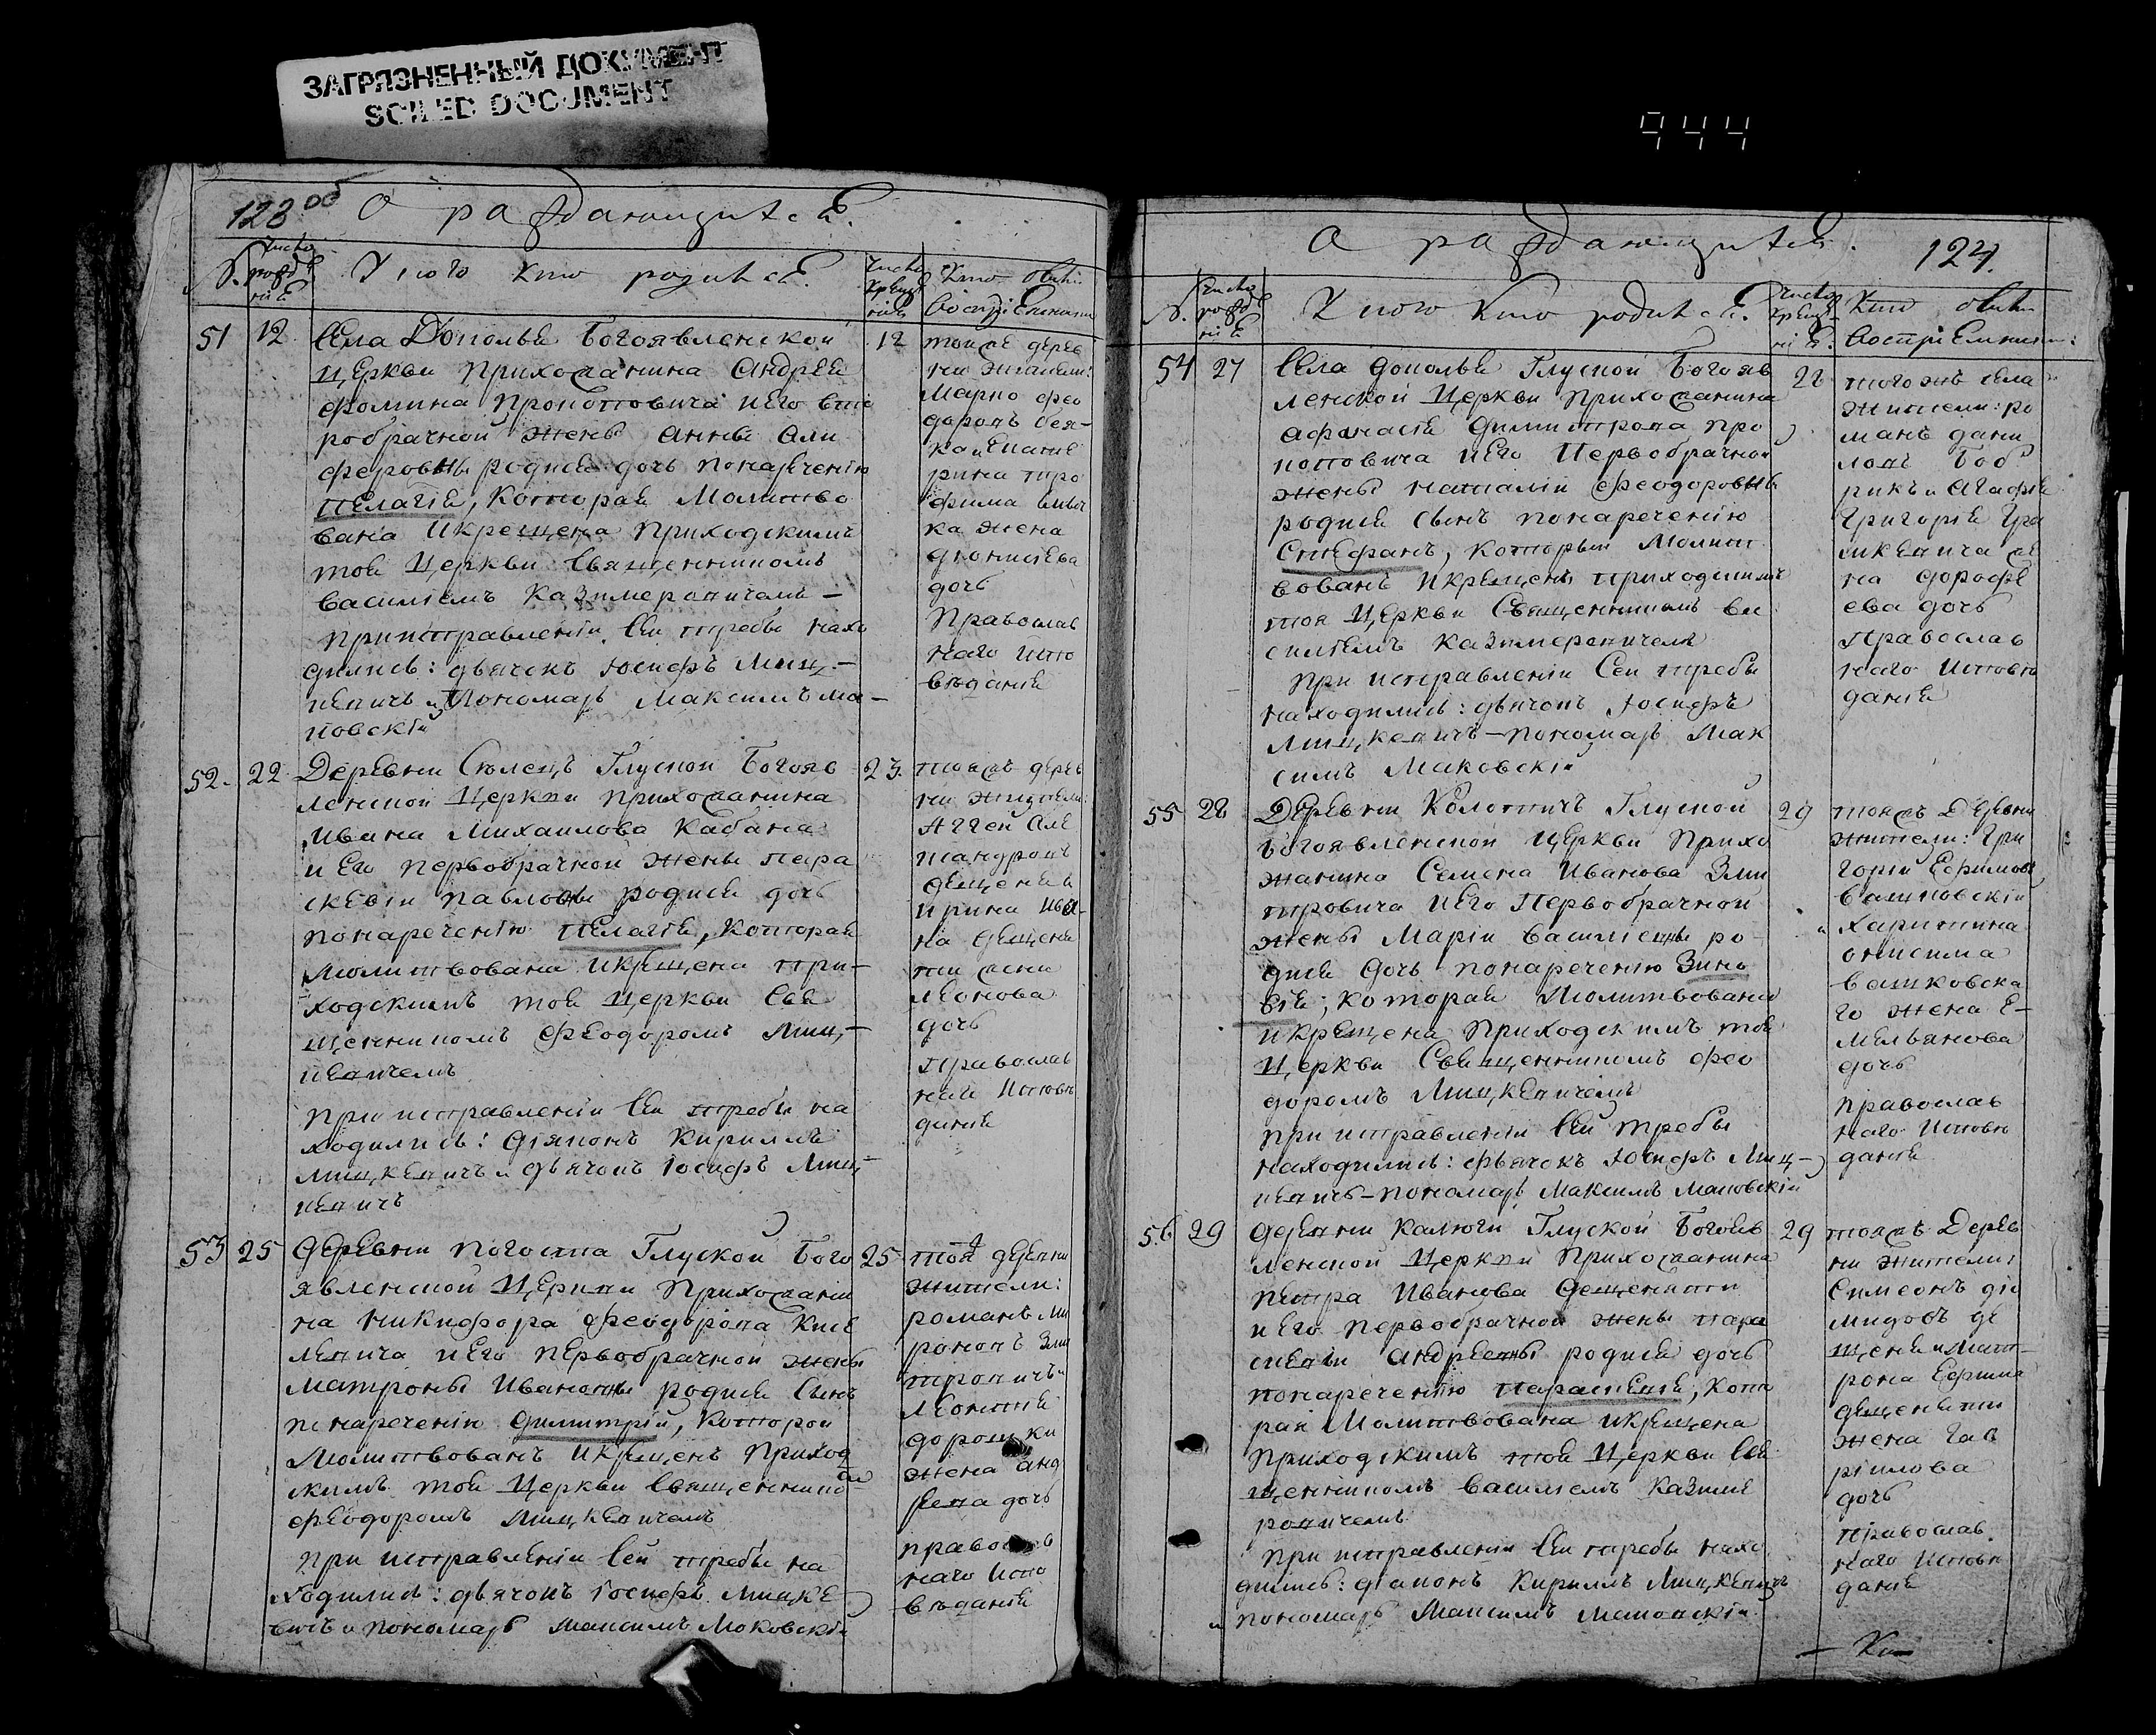 ЗАГРЯЗНЕННЫЙ ДОКУМЕНТ
SOILED DOCUMENT
944
123 об
О раждающихся.
№. Число рожденія
У кого кто родился.
Число крещенія
Кто были восприемники
51 12 12
Села Дополья Богоявленской
церкви прихожанина Андрея
Фомина Прокоповича и его вто
робрачной жены Анны Али
феровны родися дочь по наречению
Пелагія, которая молитво
вана и крещена приходскимъ
тоя церкви священникомъ
Василіемъ Казимеровичемъ –
При исправленіи сей требы нахо
дились: дьячекъ Іосифъ Миц-
кевичъ и пономарь Максимъ Ма-
ковскій
той же дерев
ни жители:
Марко Фео
доровъ
и Екате
рина Тро
фима
ка жена
Діонисіева
дочь
Православ
наго испо
вѣданія
52. 22 23.
Деревни Слонецъ Глуской Богояв
ленской церкви прихожанина
Ивана Михаилова Кабана
и его первобрачной жены Пара
скевіи Павловы родися дочь
по наречению Пелагія, которая
молитвована и крещена при-
ходскимъ тоя церкви свя
щенникомъ Феодоромъ Миц-
кевичемъ
При исправленіи сей требы на
ходились: діяконъ Кириллъ
Мицкевичъ и дьячокъ Іосифъ Миц-
кевичъ
тояжъ дерев
ни жители:
Аггей Але
ксандровъ
Дещеня и
Ирина Ива-
на Дещени
жена
Леонова
дочь
Православ
наго исповѣ
данія
53 25 25
Деревни Погоста Глуской Бого
явленской церкви прихожани
на Никифора Феодорова Кисе
левича и его первобрачной жены
Матроны Ивановны родися сынъ
по наречению Димитрій, которой
молитвованъ и крещенъ приход
скимъ тоя церкви священнико
Феодоромъ Мицкевичемъ
При исправленіи сей требы на
ходились: дьячокъ Іосифъ Мицке
вичъ и пономарь Максимъ Маковскій
тоя деревни
жители:
Романъ Ми
роновъ Зми
тровичъ и
Леонтія
Дорошки
жена Анд
реева дочь
православ
наго испо
вѣданія
О раждающихся. 124.
№. Число рожденія
У кого кто родился.
Число крещенія.
Кто были восприемники:
54 27 28
Села Дополья Глуской Богояв
ленской церкви прихожанина
Афанасія Димитрова Про
коповича и его первобрачной
жены Наталіи Феодоровны
родися сынъ по наречению
Стефанъ, который молит
вованъ и крещенъ приходскимъ
тоя церкви священникомъ Ва
силіемъ Казимеровичемъ
При исправленіи сей требы
находились: дьячокъ Іосифъ
Мицкевичъ – пономарь Мак
симъ Маковскій
того жъ села
жители: Ро
манъ Дани
ловъ Боб
рикъ и Агафія
Григорія Гри
цкевича же
на Дорофе
ева дочь
Православ
наго исповѣ
данія
55 28 29
Деревни Колотичъ Глуской
Богоявленской церкви прихо
жанина Семена Иванова Зми
тровича и его первобрачной
жены Маріи Василіевны ро-
дися дочь по наречению Зино
вія, которая молитвована
и крещена приходскимъ тоя
церкви священникомъ Фео
доромъ Мицкевичемъ
При исправленіи сей требы
находились: дьячекъ Іосифъ Миц-
кевичъ – пономарь Максимъ Маковскій
тояжъ деревни
жители: Гри
горій Ефимовъ
Вашковскій
и Харитина
Онисима
Вашковска
го жена Е-
мельянова
дочь
православ
наго исповѣ
данія
56 29 29
Деревни Калюги Глуской Богояв
ленской церкви прихожанина
Петра Иванова Дещени
и его первобрачной жены Пара
скевіи Андреевны родися дочь
по наречению Параскевія, кото
рая молитвована и крещена
приходскимъ тоя церкви свя
щенникомъ Василіемъ Казиме
ровичемъ
При исправленіи сей требы нахо
дились: діаконъ Кириллъ Мицкевичъ
и пономарь Максимъ Маковскій.
тояжъ дерев
ни жители:
Симеонъ Діо
мидовъ Де
щеня и Мат-
рона Ефима
Дещени
жена Гав
ріилова
дочь
православ
наго исповѣ
данія